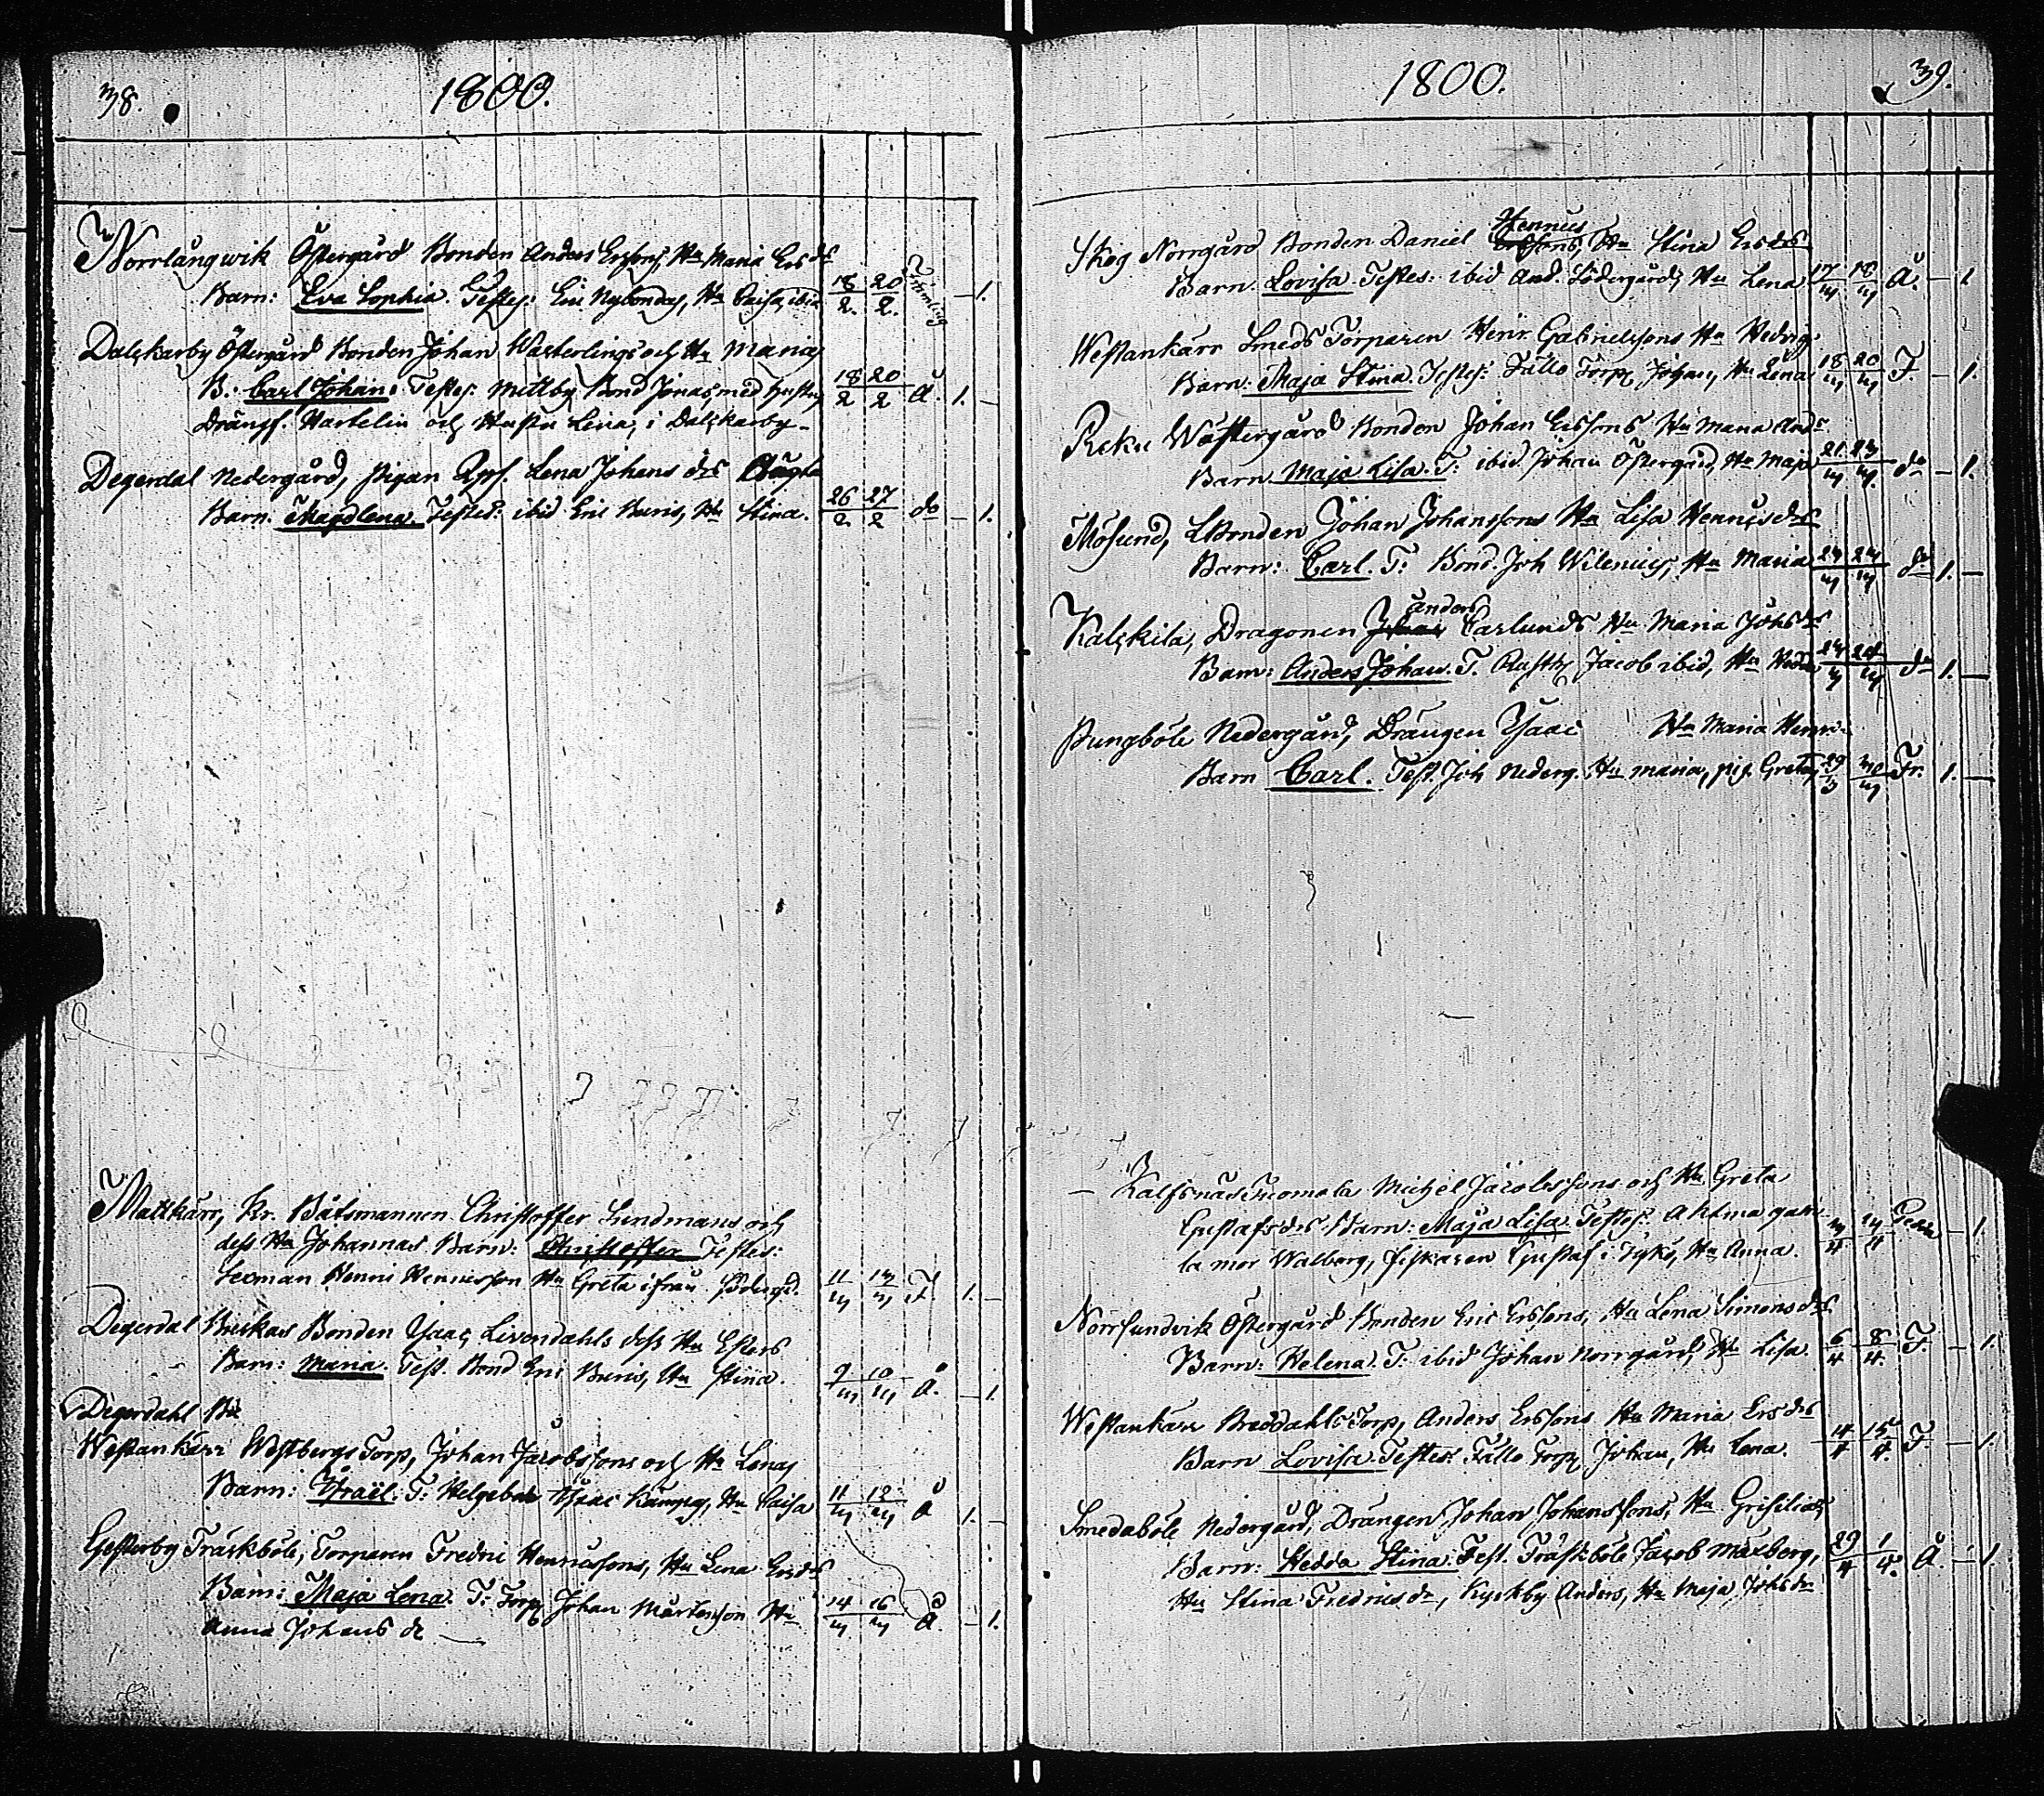 38. 1800.
Norrlångwik Östergård Bonden Anders Ersons, Hu Maria Ersdr
Barn: Eva Sophia. Testes: Eric Nybondas, Hu Caisa, ibid 18/2. 20/2. — 1.
Dalskarby Östergård Bonden Johan Westerlings och Hu Maria
B: Carl Johan. Testes: Mittby Bond Jonas, med hustru 18/2 20/2 Å. 1. —
Drängs. Hartelin och Hustru Lena, i Dalskarby.
Degerdal Nedergård, pigan Lena Johans drs
Barn. Magdlena. Testes: ibid Eric Buris, Hu Stina. 26/2 27/2 do — 1.
Mattkärr, Kr. Båtsmannen Christoffer Lundmans och
dess Hu Johannas Barn: Christoffer Testes:
Henric Henricsson Hu Greta ifrån Södergd. 11/3 13/3 F. 1. —
Degerdal Briskas Bonden Isaac Livendahls dess Hu Esters
Barn: Maria. Test. Bond Eric Buris, Hu Stina. 9/3 10/3 Å. — 1.
Degerdahl Br
Westankärr Westbergs Torp, Johan Jacobssons och Hu Lenas
Barn: Israël. T: Helgeboda Isaac Hu Caisa 11/3 12/3 Å 1. —
Gesterby Träskböle, Torparen Fredric Henricssons, Hu Lena Ersdr
Barn: Maja Lena. T: Torp. Johan Mårtensson Hu 14/3 16/3 Å. — 1.
Anna Johans dr —
1800. 39.
Henrics
Skog Norrgård Bonden Daniel Ersons, Hu Stina Ersdrs
Barn. Lovisa. Testes: ibid And. Södergård, Hu Lena 17/3 18/3 Å. — 1
Westankärr Smeds Torparen Henr. Gabrielssons Hu Hedvig
Barn: Maja Stina. Testes: Fällo Torp. Johan, Hu Lena 18/3 20/3 F. — 1.
Reku Wästergård Bonden Johan Erssons Hu Maria Andr
Barn Maja Lisa. T: ibid Johan Östergård, Hu Maja 21/3 23/3 do — 1.
Mösund, Bonden Johan Johanssons Hu Lisa Henricsdrs
Barn: Carl. T: Bond. Joh Wilenius, Hu Maria 24/3 24/3 do 1. —
Anders
Kalskila, Dragonen Johan Carlunds Hu Maria Johsdr
Barn: Anders Johan. T. Rusth. Jacob ibid, Hu Hedda 24/3 24/3 do 1. —
Pungböle Nedergård, Drängen Isaac Hu Maria Henr:
Barn Carl. Test. Joh Nederg. Hu Maria, pig. Greta, 29/3 30/3 Fr. 1. —
— Kalfsnäs Michel Jacobssons och Hu Greta
Gustafsdrs Barn: Maja Lisa. Testes: gam 3/4 3/4 — 1.
la mor Walborg, fiskaren Gustaf i Hu Anna.
Norrsundvik Östergård Bonden Eric Erssons, Hu Lena Simonsdrs
Barn: Helena. T: ibid Johan Norrgård, Hu Lisa. 6/4 8/4. F. — 1.
Westankärr Breddahls Torp, Anders Erssons Hu Maria Ersdrs
Barn Lovisa. Testes: Fällo Torp. Johan, Hu Lena. 14/4 15/4. F. — 1.
Smedaböle Nedergård, Drängen Johan Johanssons, Hu Grisilias
Barn: Hedda Stina. Test. Träskböle Jacob Maxberg, 29/4 1/4. Å. — 1
Hu Stina Fredricsdr, Kyrkby Anders, Hu Maja Johsdr